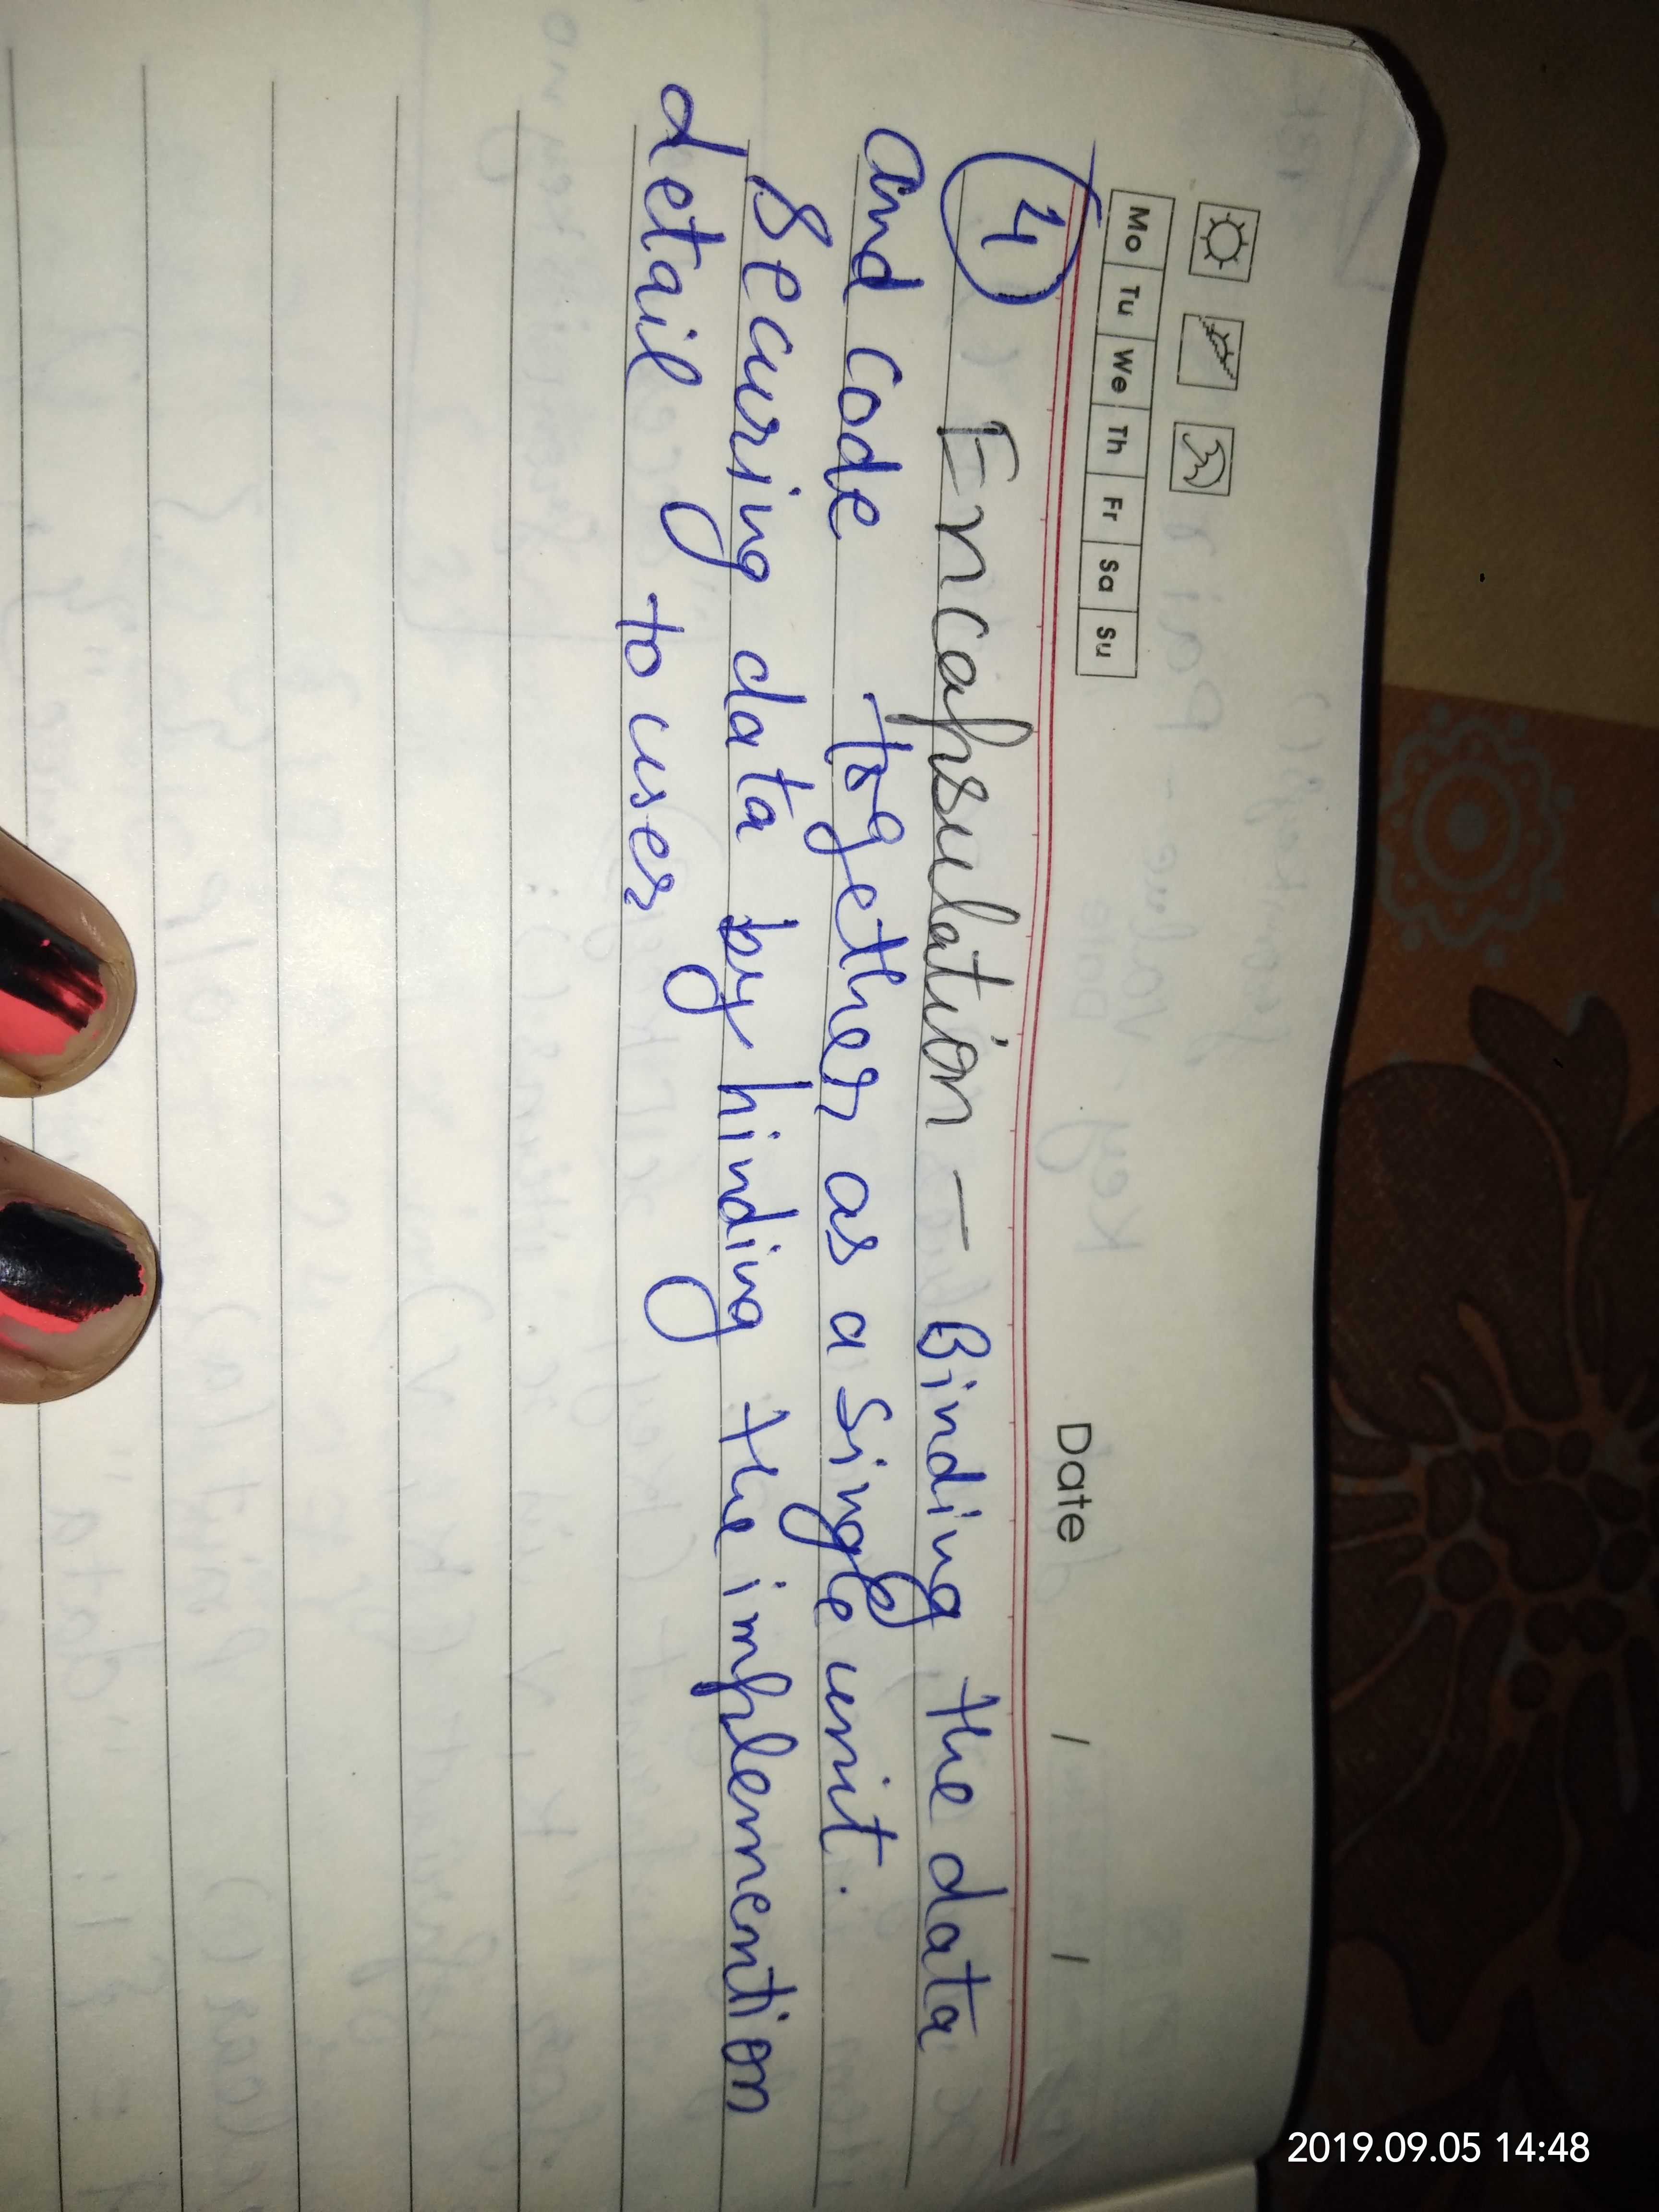 Mo Tu We Th Fr Sa Su
Date / /
4 Encapsulation - Binding the data
and code together as a single unit.
Securing data by hinding the implemention
detail to user
2019.09.05 14:48